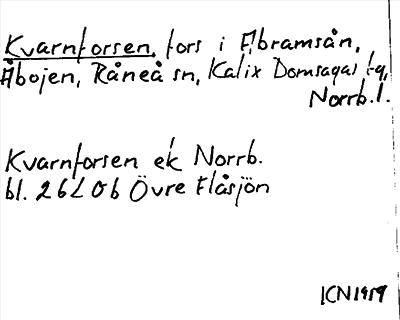 Kvarnforsen, fors i Abramsån,
Åbojen, Råneå sn, Kalix Domsagas tg,
Norrb. l.
Kvarnforsen ek Norrb.
bl. 26L 0b Övre Flåsjön
ICN 1919